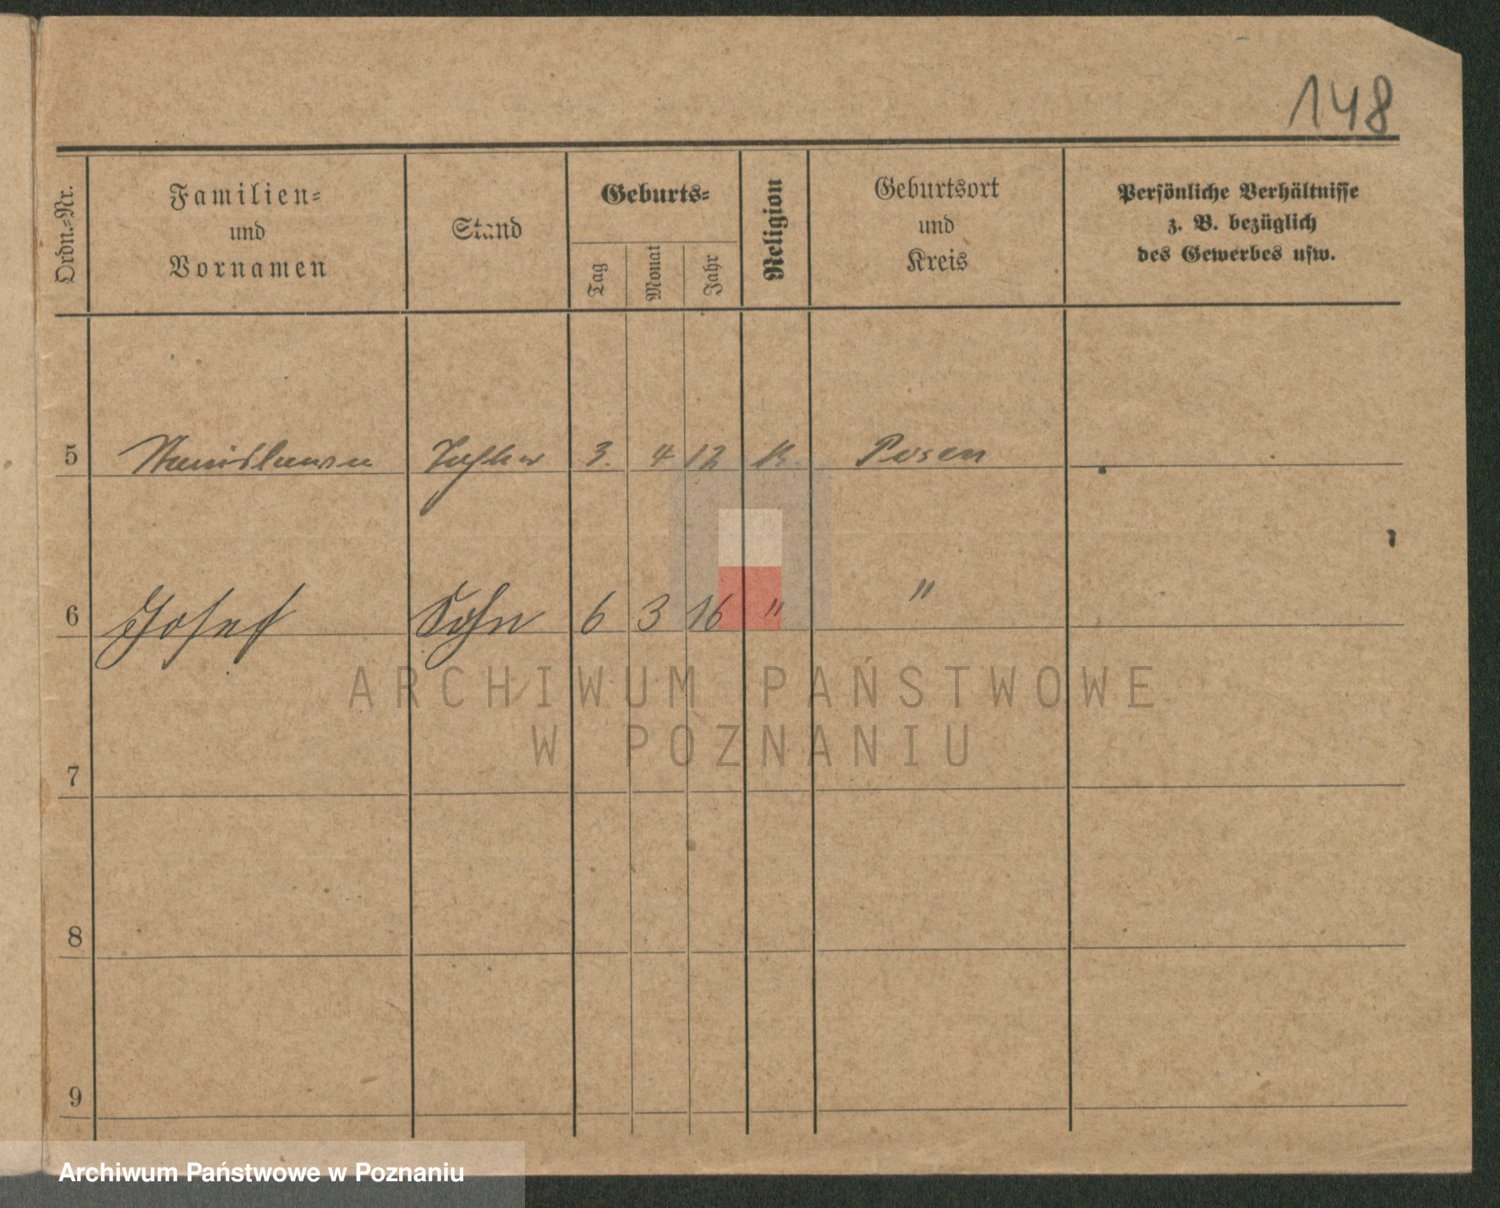 148
Ordn.-Nr.
Familien-
und
Vornamen
Stand
Geburts-
Tag
Monat
Jahr
Religion
Geburtsort
und
Kreis
Persönliche Verhältnisse
z. B. bezüglich
des Gewerbes usw.
5 Stanislawa Tochter 3. 4 12 K. Posen
6 Josef Sohn 6 3 16 " "
ARCHIWUM PAŃSTWOWE
W POZNANIU
7
8
9
Archiwum Państwowe w Poznaniu